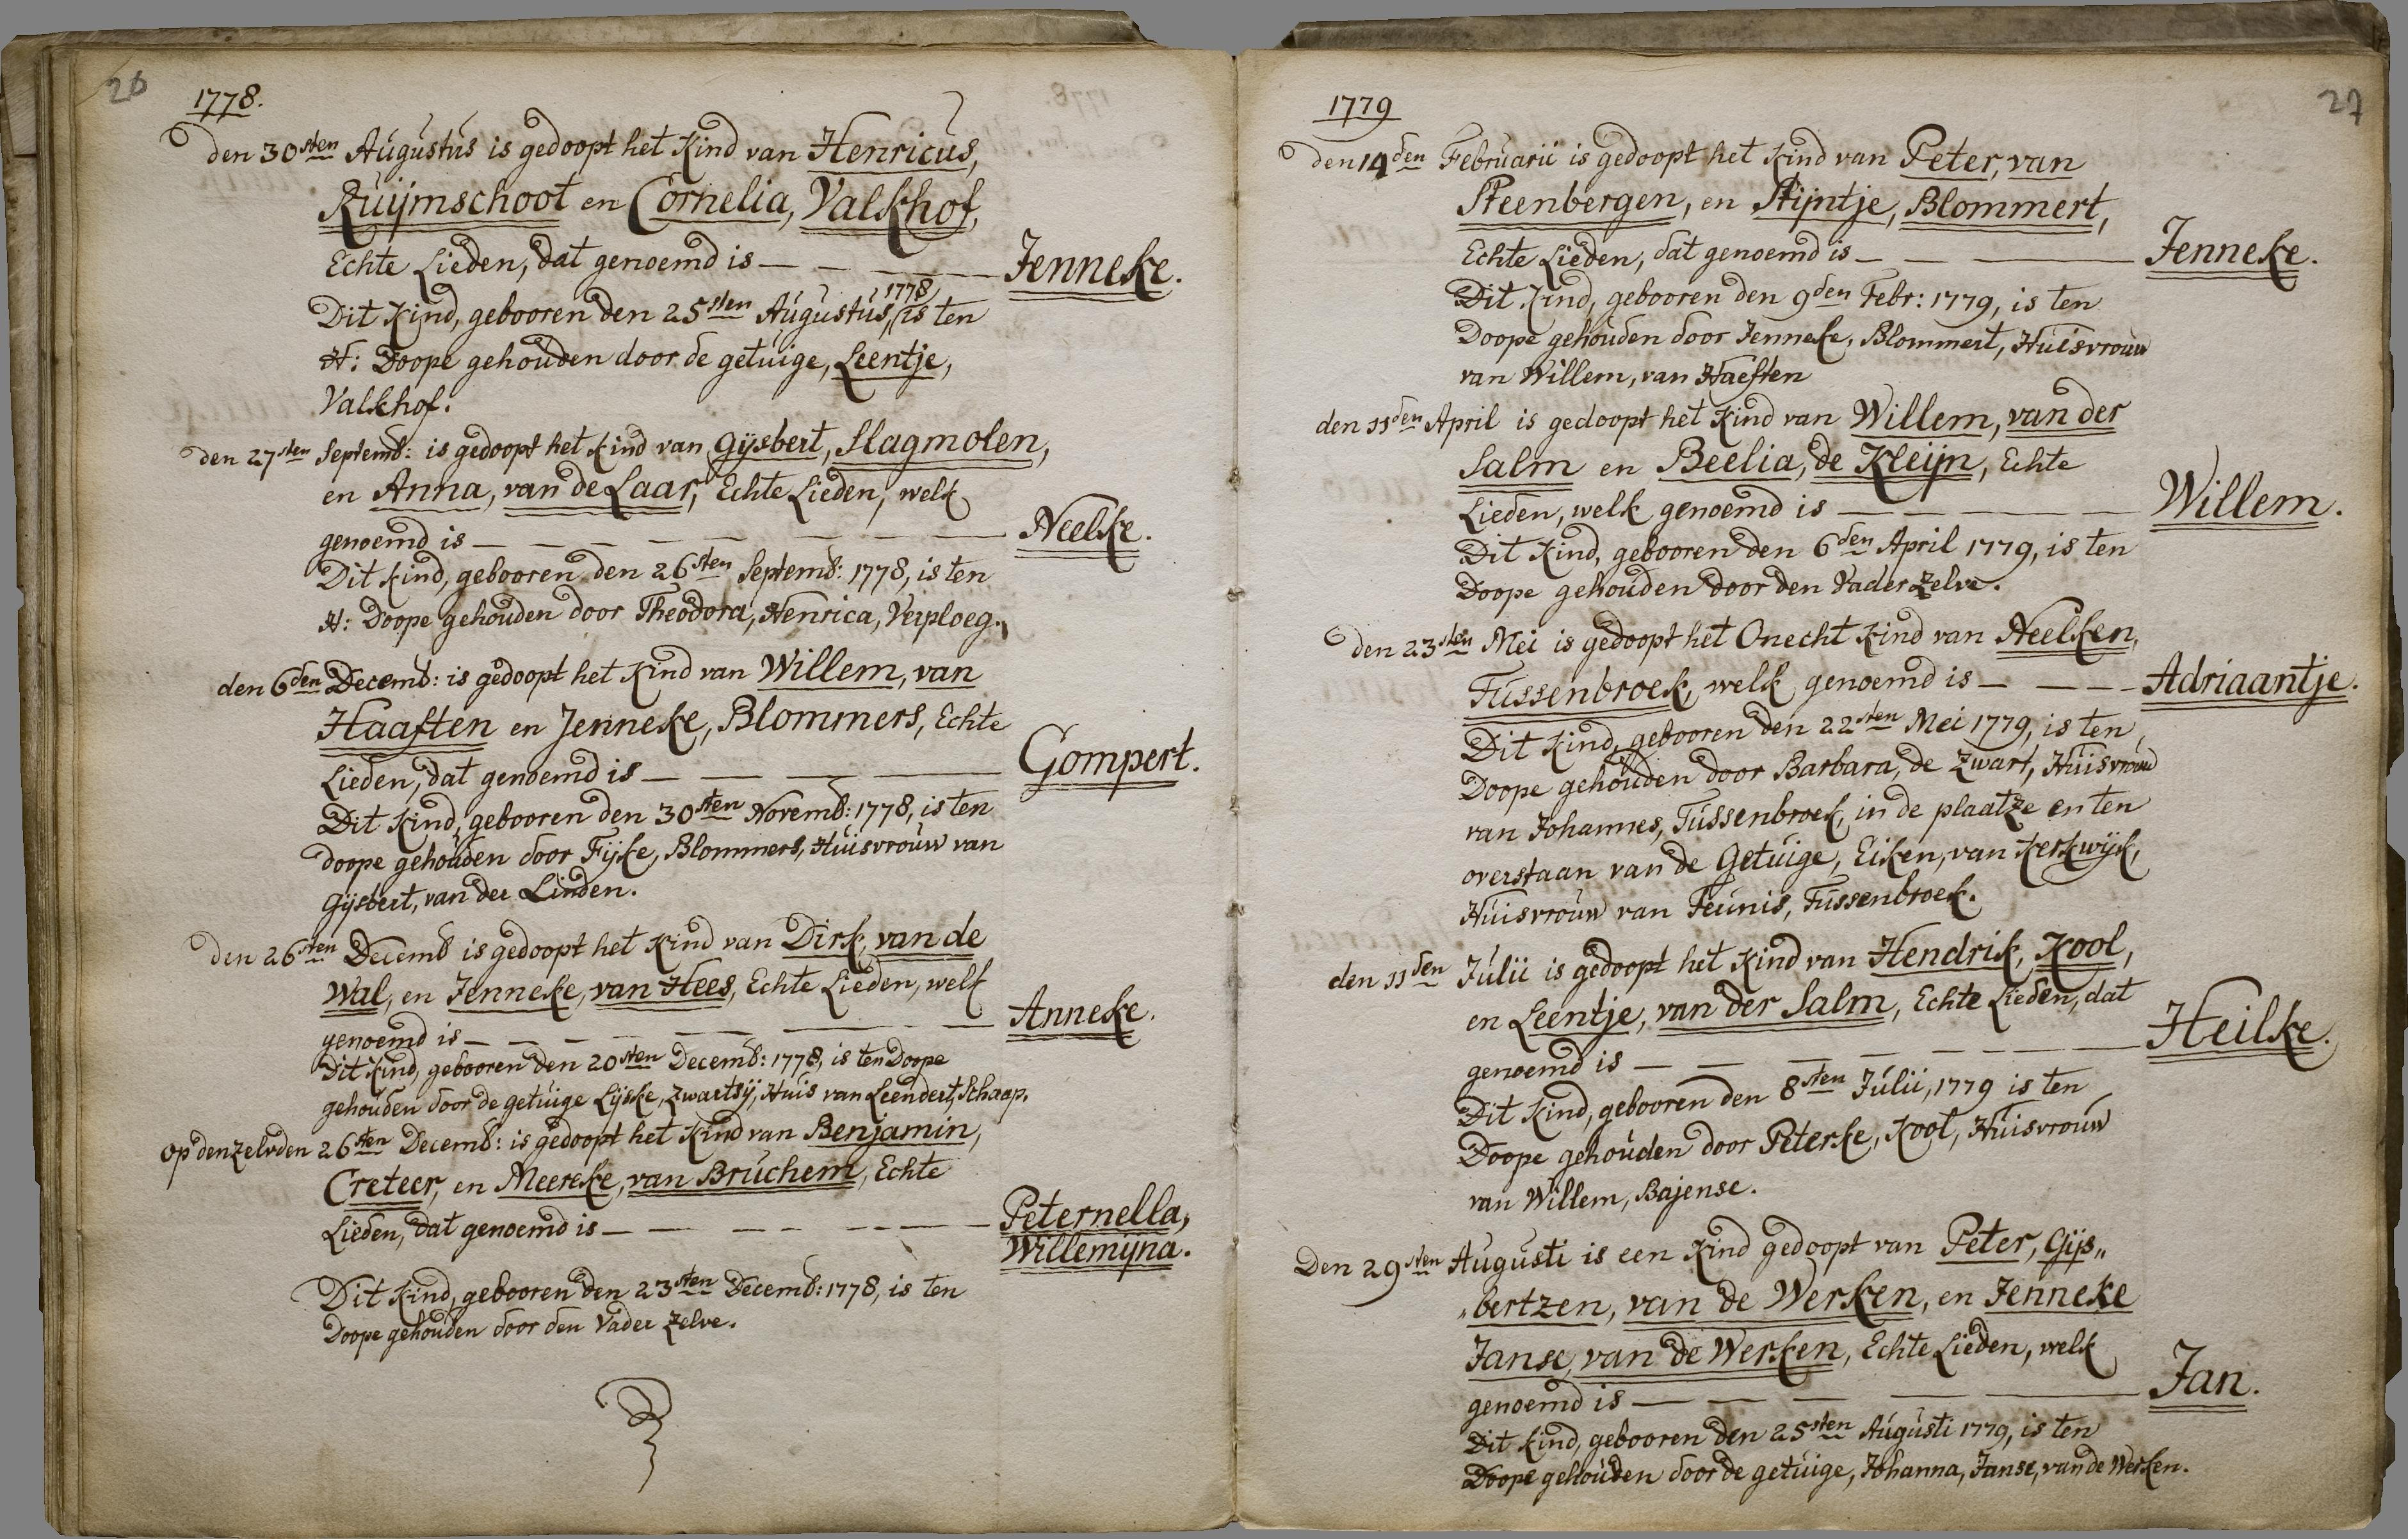 26
1778.
den 30sten Augustus is gedoopt het Kind van Henricus,
Ruijmschoot en Cornelia, Valkhof,
Echte Lieden, dat genoemd is — — — — Jenneke.
Dit Kind, gebooren den 25sten Augustus, 1778 is ten
H: Doope gehouden door de getuige, Leentje,
Valkhof.
den 27sten Septemb: is gedoopt het Kind van Gijsbert, Slagmolen,
en Anna, van de Laar, Echte Lieden, welk
genoemd is — — — — — — — — Neelke.
Dit Kind, gebooren den 26sten Septemb: 1778, is ten
H: Doope gehouden door Theodora, Henrica, Verploeg.
den 6den Decemb: is gedoopt het Kind van Willem, van
Haaften en Jenneke, Blommers, Echte
Lieden, dat genoemd is — — — — Gompert.
Dit Kind, gebooren den 30sten Novemb: 1778, is ten
doope gehouden door Fijke, Blommers, Huisvrouw van
Gijsbert, van der Linden.
den 26sten Decemb is gedoopt het Kind van Dirk, van de
Wal, en Jenneke, van Hees, Echte Lieden, welk
genoemd is — — — — — — — — Anneke.
Dit Kind, gebooren den 20sten Decemb: 1778, is ten Doope
gehouden door de getuige Lijske, Zwartsij, Huis van Leendert, Schaap.
op denzelvden 26sten Decemb: is gedoopt het Kind van Benjamin,
Creteer, en Meereke, van Bruchem, Echte
Lieden, dat genoemd is — — — — — — — Peternella,
Willemijna.
Dit Kind, gebooren den 23sten Decemb: 1778, is ten
Doope gehouden door den Vader zelve.
27
1779
den 14den Februarii is gedoopt het Kind van Peter, van
Steenbergen, en Stijntje, Blommert,
Echte Lieden, dat genoemd is — — — Jenneke.
Dit Kind, gebooren den 9den Febr: 1779, is ten
Doope gehouden door Jenneke, Blommert, Huisvrouw
van Willem, van Haeften
den 11den April is gedoopt het Kind van Willem, van der
Salm en Beelia, de Kleijn, Echte
Lieden, welk genoemd is — — — — — Willem.
Dit Kind, gebooren den 6den April 1779, is ten
Doope gehouden door den Vader zelve.
den 23sten Mei is gedoopt het Onecht Kind van Neelken,
Tussenbroek, welk genoemd is — — — — Adriaantje.
Dit Kind, gebooren den 22sten Mei 1779, is ten
Doope gehouden door Barbara, de Zwart, Huisvrouw
van Johannes, Tussenbroek, in de plaatze en ten
overstaan van de Getuige, Eiken, van Kerkwijk,
Huisvrouw van Teunis, Tussenbroek.
den 11den Julii is gedoopt het Kind van Hendrik, Kool,
en Leentje, van der Salm, Echte Lieden, dat
genoemd is — — — — — — — Heilke.
Dit Kind, gebooren den 8sten Julii, 1779 is ten
Doope gehouden door Peterke, Kool, Huisvrouw
van Willem, Bajense.
Den 29sten Augusti is een Kind gedoopt van Peter, Gijs„
„bertzen, van de Werken, en Jenneke
Janse, van de Werken, Echte Lieden, welk
genoemd is — — — — — Jan.
Dit Kind, gebooren den 25sten Augusti 1779, is ten
Doope gehouden door de getuige, Johanna, Janse, van de Werken.